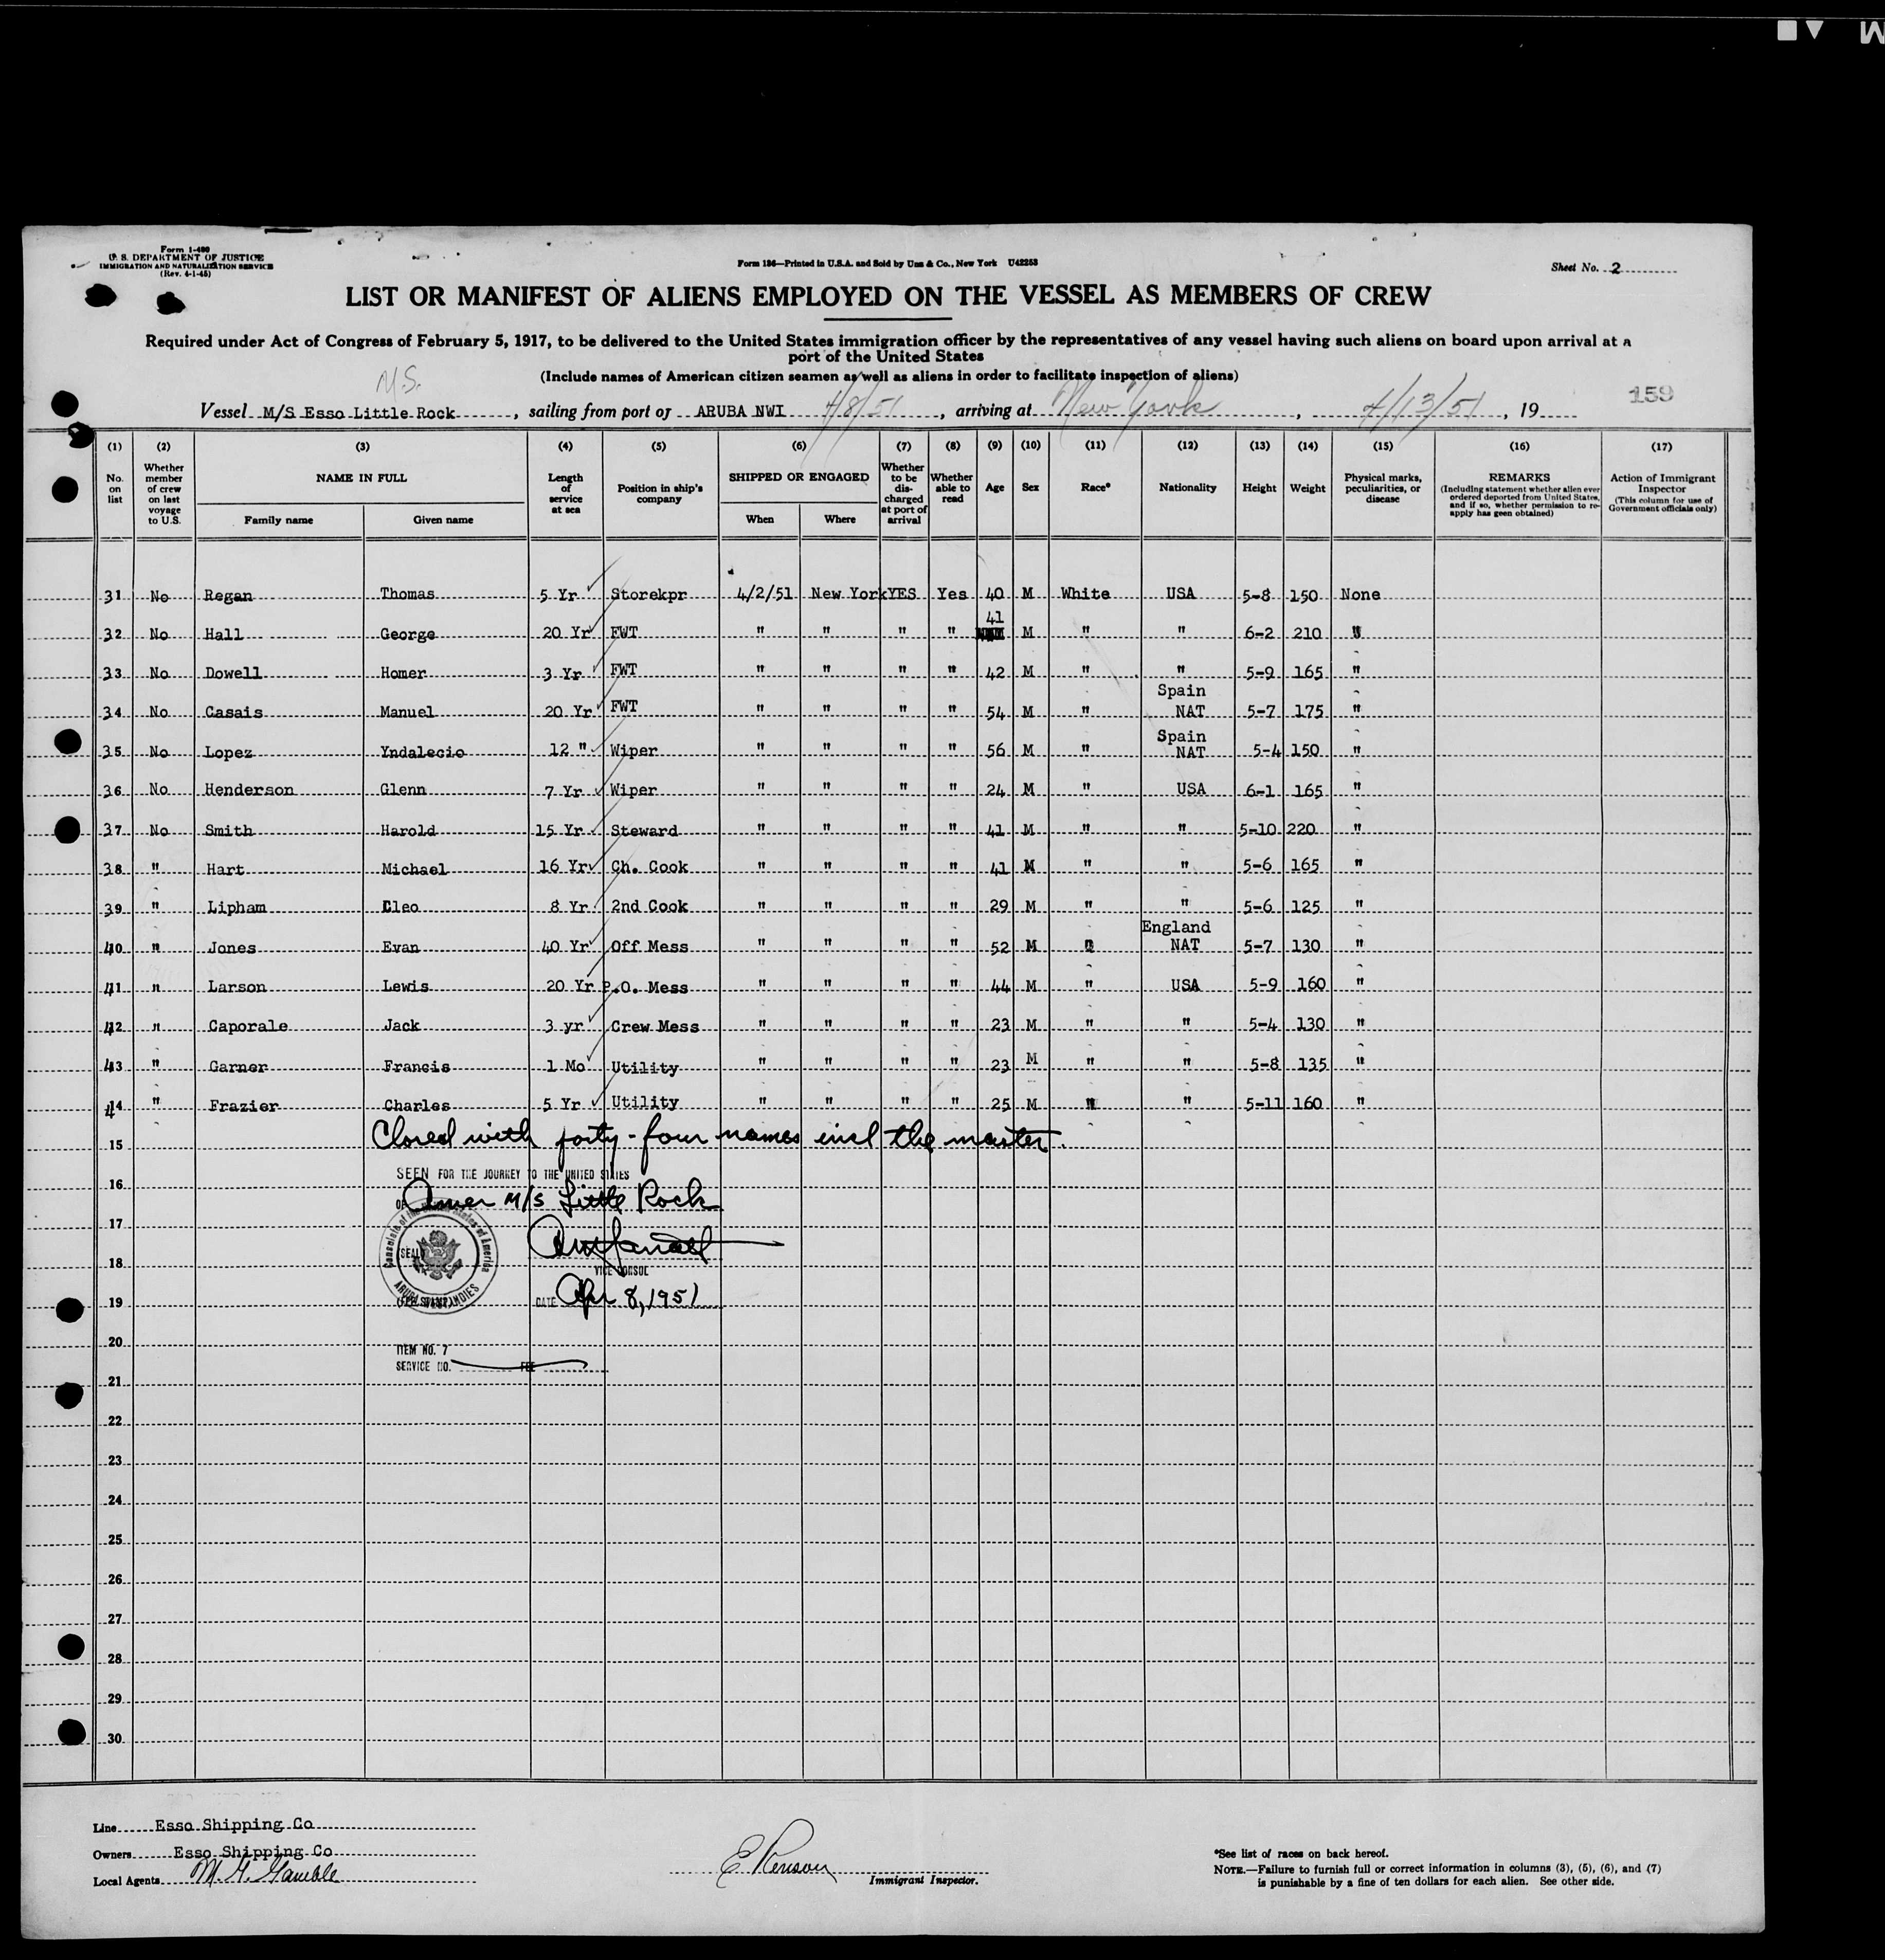 Form I-480
U. S. DEPARTMENT OF JUSTICE
IMMIGRATION AND NATURALIZATION SERVICE
(Rev. 4-1-45)
Form 186—Printed in U.S.A. and Sold by Unz & Co., New York U42253
Sheet No. 2
LIST OR MANIFEST OF ALIENS EMPLOYED ON THE VESSEL AS MEMBERS OF CREW
Required under Act of Congress of February 5, 1917, to be delivered to the United States immigration officer by the representatives of any vessel having such aliens on board upon arrival at a
port of the United States
(Include names of American citizen seamen as well as aliens in order to facilitate inspection of aliens)
M.S.
Vessel M/S Esso Little Rock, sailing from port of ARUBA NWI 4/8/51, arriving at New York, 4/13/51, 19
159
(1) (2) (3) (4) (5) (6) (7) (8) (9) (10) (11) (12) (13) (14) (15) (16) (17)
No. on list
Whether member of crew on last voyage to U.S.
NAME IN FULL
Family name Given name
Length of service at sea
Position in ship's company
SHIPPED OR ENGAGED
When Where
Whether to be discharged at port of arrival
Whether able to read
Age Sex Race* Nationality Height Weight
Physical marks, peculiarities, or disease
REMARKS
(Including statement whether alien ever ordered deported from United States, and if so, whether permission to re-apply has geen obtained)
Action of Immigrant Inspector
(This column for use of Government officials only)
31 No Regan Thomas 5 Yr Storekpr 4/2/51 New York YES Yes 40 M White USA 5-8 150 None
32 No Hall George 20 Yr FWT " " " " 41 M " " 6-2 210 "
33 No Dowell Homer 3 Yr FWT " " " " 42 M " " 5-9 165 "
34 No Casais Manuel 20 Yr FWT " " " " 54 M " Spain NAT 5-7 175 "
35 No Lopez Yndalecio 12 " Wiper " " " " 56 M " Spain NAT 5-4 150 "
36 No Henderson Glenn 7 Yr Wiper " " " " 24 M " USA 6-1 165 "
37 No Smith Harold 15 Yr Steward " " " " 41 M " " 5-10 220 "
38 " Hart Michael 16 Yr Ch. Cook " " " " 41 M " " 5-6 165 "
39 " Lipham Cleo 8 Yr 2nd Cook " " " " 29 M " " 5-6 125 "
40 " Jones Evan 40 Yr Off Mess " " " " 52 M " England NAT 5-7 130 "
41 " Larson Lewis 20 Yr P.O. Mess " " " " 44 M " USA 5-9 160 "
42 " Caporale Jack 3 yr Crew Mess " " " " 23 M " " 5-4 130 "
43 " Garner Francis 1 Mo Utility " " " " 23 M " " 5-8 135 "
44 " Frazier Charles 5 Yr Utility " " " " 25 M " " 5-11 160 "
Closed with forty-four names incl the master.
15
SEEN FOR THE JOURNEY TO THE UNITED STATES
16
OF Amer M/S Little Rock
17
Consulate of the United States of America
(SEAL)
18
VICE CONSUL
ARUBA, WEST INDIES
(FEE STAMP)
19
DATE Apr 8, 1951
20
ITEM NO. 7
SERVICE NO. FEE
21
22
23
24
25
26
27
28
29
30
Line Esso Shipping Co
Owners Esso Shipping Co
Local Agents M. G. Gamble
Immigrant Inspector.
*See list of races on back hereof.
NOTE.—Failure to furnish full or correct information in columns (3), (5), (6), and (7)
is punishable by a fine of ten dollars for each alien. See other side.